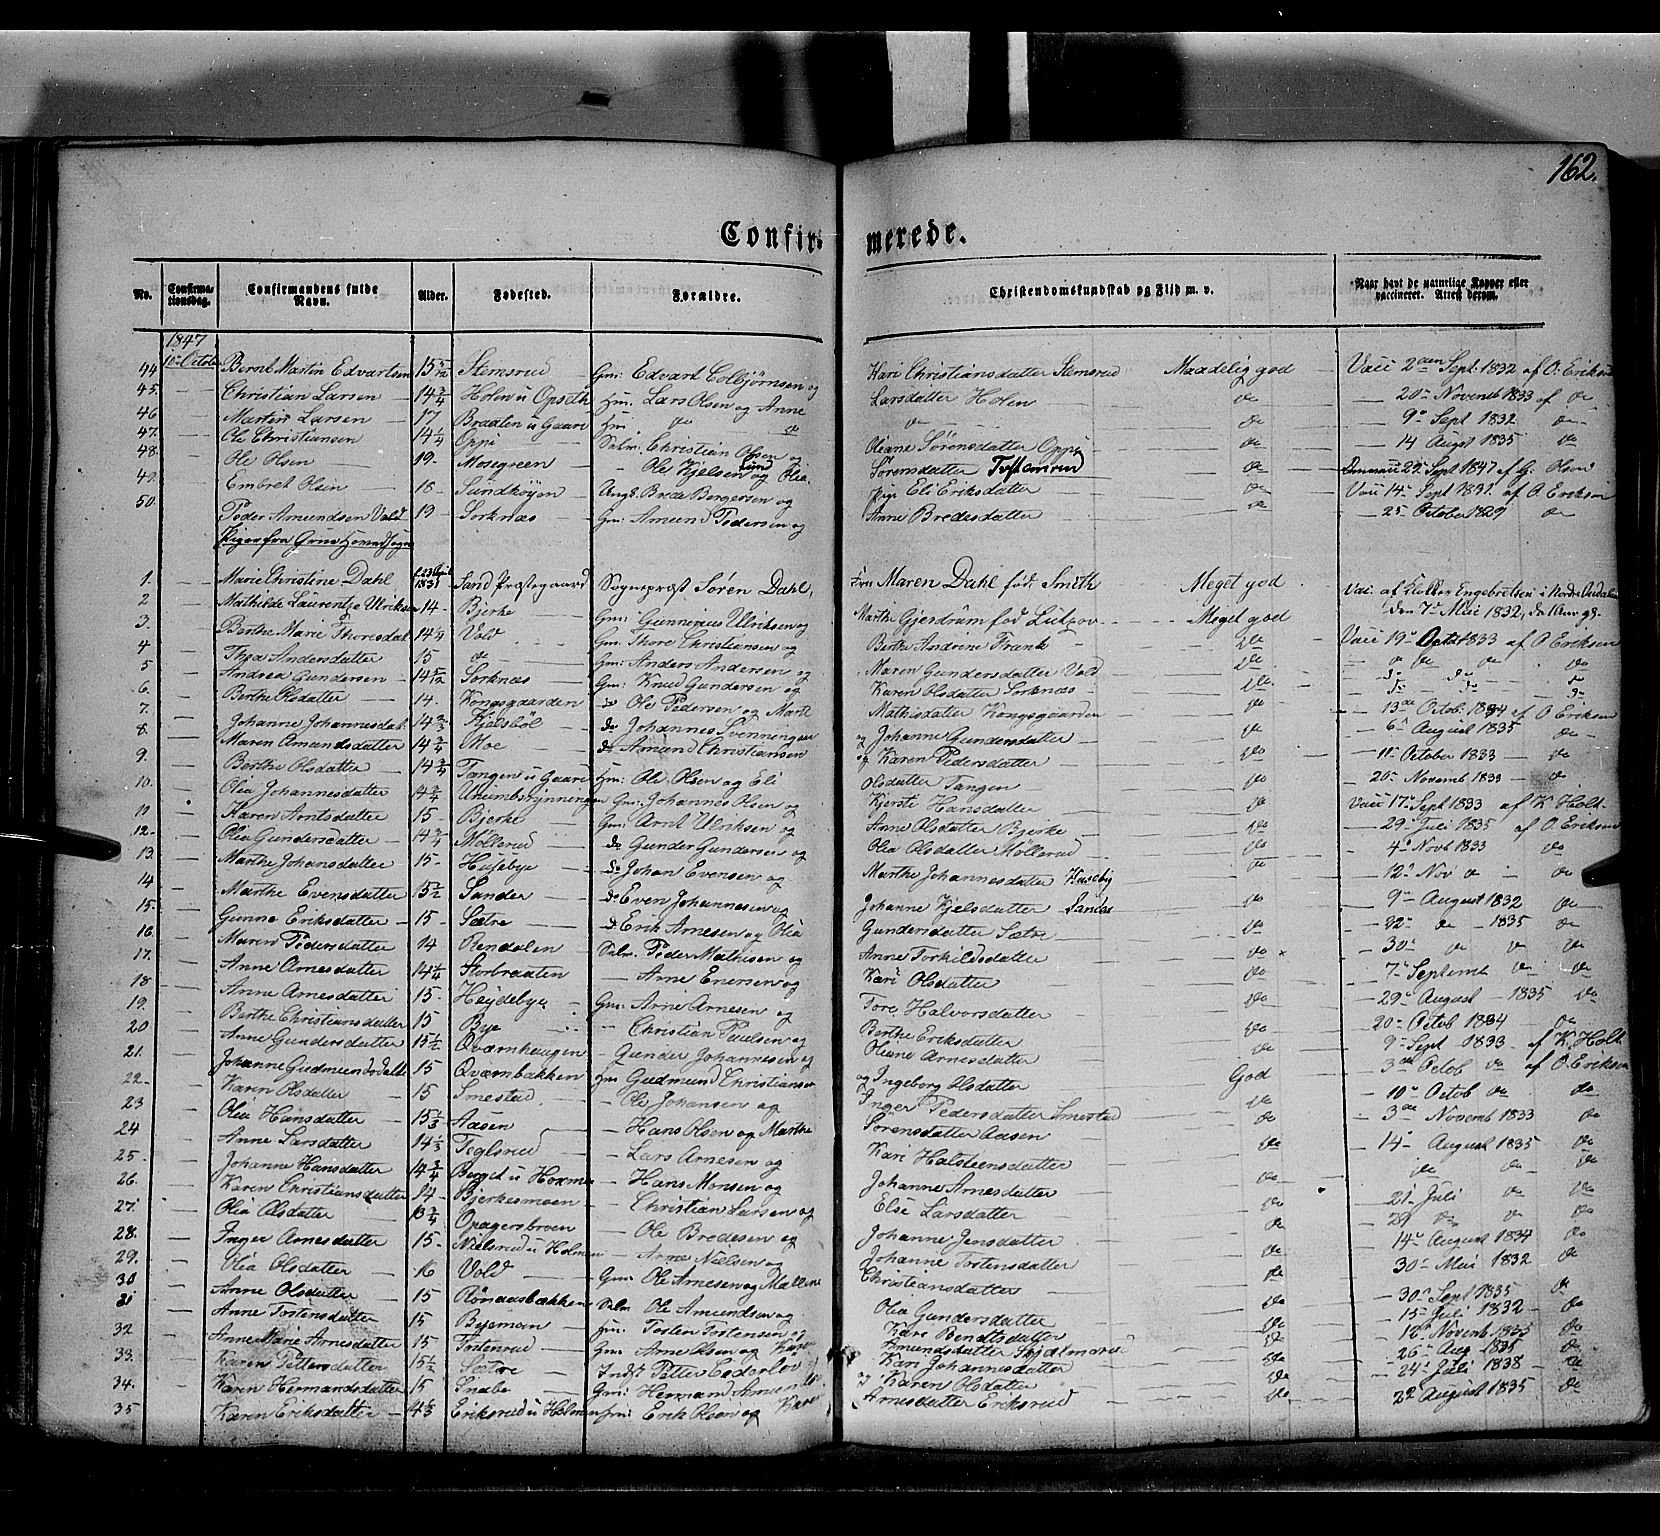 162.
Confirmerede.
No. Confirmationsdag. Confirmandens fulde Navn. Alder. Fødested. Forældre. Christendomskundskab og Flid m. v. Naar havt de naturlige Kopper eller vaccineret. Attest derom.
1847
44 10de October Bernt Martin Edvartsen 15 5/12 Stemsrud Gm: Edvart Colbjørnsen og Kari Christiansdatter Stemsrud Maadelig god Vacc 2den Sept. 1832 af O. Eriksen
45. Christian Larsen 14 3/4 Holen u Opseth Hm. Lars Olsen og Anne Larsdatter Holen do 20de Novemb 1833 af do
46 Martin Larsen 17 Braaten u Gaare Hm do do do do 9de Sept 1832 do
47. Ole Christiansen 14 1/4 Oppi Christian Olsen og Oleane Sørensdatter Oppi do 14 Augst 1835 do
48. Ole Olsen 19 Mosegreen Ole Kjelsen Lund og Olea Sørensdatter do 29de Sept 1847 af G. Olsen
49. Embret Olsen 18 Sundhøyen Ungk. Brede Borgersen og Pige Eli Eriksdatter do Vacc 14de Sept 1832 af O. Eriksen
50. Peder Amundsen Vold 19 Sorknæs Gm: Amund Pedersen og Anne Bredesdatter do 25 October 1829 do
Piger fra Grue Hovedsogn
1. Marie Christine Dahl 1831 Sand Præstegaard Sognepræst Søren Dahl, Fru Maren Dahl fød Smith Meget god Vac. af Engebretsen i Nordre Odalen
2 Mathilde Laurentze Ulriksen 14 Bjerke Gm: Gunnerius Ulriksen og Marthe Gjerdrum fød Lützov Meget god den 7de Mai 1832,
3. Berthe Marie Thoresdat 14 1/4 Vold Gm: Thore Christiansen og Berthe Andrine Frank do Vacc 19de Octob 1833 af O Eriksen
4 Thea Andersdatter 15 do Gm: Anders Andersen og Maren Gundersdatter Vold do do do do do
5 Andrea Gundersen 14 5/12 Sorknæs Gm: Knud Gundersen og Karen Olsdatter Sorknæs do do do do
6. Berthe Olsdatter 14. Kongsgaarden do Ole Pedersen og Marte Mathisdatter Kongsgaarden do 13de Octob. 1834 af O Eriksen
7. Johanne Johannesdat 14 2/3 Kjelsbøl do Johannes Svenningsen og Johanne Gundersdatter do 6te August 1835 do
8. Maren Amundsdatter 14 3/4 Moe do Amund Christiansen og Karen Pedersdatter do 11te October 1833 do
9. Berthe Olsdatter 14 3/4 Tangen u Gaare Hm: Ole Olsen og Eli Olsdatter Tangen do 20de Novemb 1833 do
10. Olea Johannesdatter 14 3/4 Gm: Johannes Olsen og Kjersti Hansdatter do Vacc 17de Sept 1833 af K Holt
11 Karen Arntsdatter 15 Bjerke Gm: Arnt Ulriksen og Anne Olsdatter Bjerke do 29de Juli 1835 af O. Eriksen
12. Olea Gundersdatter 14 3/4 Møllerud do Gunder Gundersen og Olea Olsdatter Møllerud do 4de Novb 1833 do
13. Marthe Johansdatter 15 Husebye do Johan Evensen og Marthe Johannesdatter Huseby do 12te Nov do do
14 Marthe Evensdatter 15 1/2 Sander do Even Johannesen og Johanne Kjelsdatter Sander do 9de August 1832 do
15. Gunne Eriksdatter 15 Sætre do Erik Arnesen og Olea Gundersdatter Sætre do 22de do 1835 do
16. Maren Pedersdatter 14 Peder Mathisen og Anne Torkildsdatter do 30te do do do
17. Anne Arnesdatter 14 1/4 Storbraaten Arne Enersen og Kari Olsdatter do 7de Septemb do do
18 Anne Arnesdatter 15 Heydebye Gm: Arne Arnesen og Tore Halvorsdatter do 29de August 1835 do
19. Berthe Christiansdatter 15 Bye Christian Paulsen og Berthe Eriksdatter do 20de Octob 1834 do
20 Anne Gundersdatter 15 1/2 Qværnhaugen Gunder Johannesen og Oleane Arnesdatter do 9de Sept 1833 af K. Holt
21. Johanne Gudmundsdatt 15 Qværnbakken Hm Gudmund Christiansen og Ingeborg Olsdatter God 3die Octob do af O. Eriksen
22. Karen Olsdatter 15 Smestad Ole Johansen og Inger Pedersdatter Smestad do 10de Octob do do
23 Olea Hansdatter 15 1/3 Aasen Hans Olsen og Marthe Sørensdatter Aasen do 3die Novemb 1833 do
24 Anne Larsdatter 14 1/3 Teglsrud Lars Arnesen og Kari Halsteensdatter do 14de August 1835 do
25. Johanne Hansdatter 14 3/4 Berget u Hans Monsen og Johanne Arnesdatter do do do
26. Karen Christiansdatter 14 Bjerkesmoen Christian Larsen og Else Larsdatter do 21de Juli do do
27. Olea Olsdatter 13 3/4 Opagersbroen Ole Bredesen og Johanne Jensdatter do 29 do do do
28. Inger Arnesdatter 15 Nielsrud u Holmen Arne Nielsen og Johanne Tostensdatter do 14de August 1834 do
29. Olea Olsdatter 16 Vold Gm: Ole Arnesen og Mallene Christiansdatter do 30te Mai 1832 do
30 Anne Olsdatter 15 Rønaasbakken Ole Amundsen og Olea Gundersdatter do 30te Sept 1835 do
31 Anne Tostensdatter 15 Byeman Hm: Tosten Tostensen og Kari Bendtsdatter do 15de Juli 1832 do
32 Anne Marie Arnesdatter 15 Tostenrud Gm: Arne Olsen og Amundsdatter do 18de Novemb 1835 do
33. Karen Pettersdatter 15 1/2 Sætre Indst Petter Cederlöv Kari Johannesdatter do 26de Aug 1835 do
34. Karen Hermandsdatter 15 Snabe Gm: Hermand Karen Olsdatter do 24de Juli 1838 do
35 Karen Eriksdatter 14 2/3 Eriksrud u Holmen Hm: Erik Olsen og Kari Arnesdatter Eriksrud do 22 August 1835 do